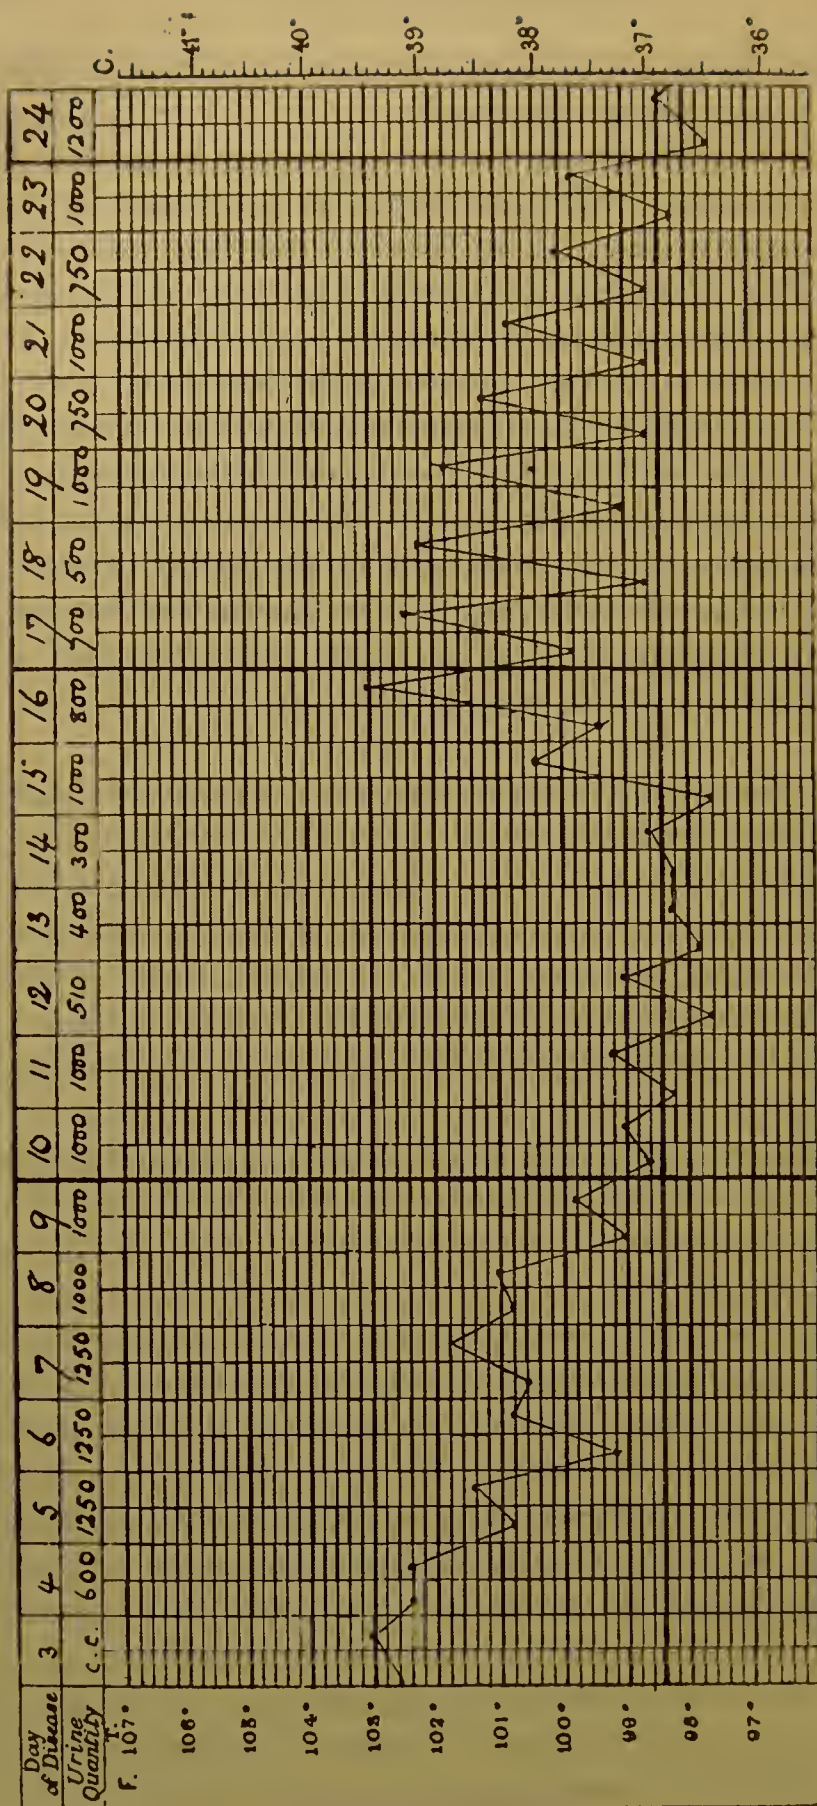 Day of Disease 3 4 5 6 7 8 9 10 11 12 13 14 15 16 17 18 19 20 21 22 23 24
Urine Quantity c.c. 600 1250 1250 1250 1000 1000 1000 1000 510 400 300 1000 800 700 500 1000 750 1000 750 1000 1200
T.
F. 107° C.
106° 41°
105°
104° 40°
103°
102° 39°
101° 38°
100°
99° 37°
98°
97° 36°